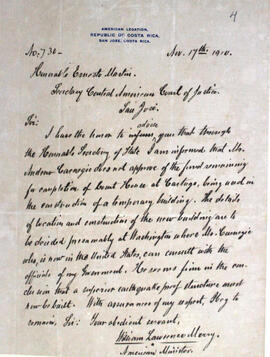 4
AMERICAN LEGATION,
REPUBLIC OF COSTA RICA,
SAN JOSE, COSTA RICA.
No. 730 - Nov. 17th 1910.
Honorable Ernesto Martin.
Secretary Central American Court of Justice.
San José.
Sir:
advise
I have the honor to inform you that through
the Honorable Secretary of State I am informed that Mr.
Andrew Carnegie does not approve of the fund remaining
for completion of Court House at Cartago, being used in
the construction of a temporary building. The details
of location and construction of the new building are to
be decided presumably at Washington where Mr. Carnegie
who, is now in the United States, can consult with the
officials of my Government. He seems firm in the con-
clusion that a superior earthquake proof structure must
now be built. With assurances of my respect, I beg to
remain, Sir: Your obedient servant,
William Lawrence Merry.
American Minister.